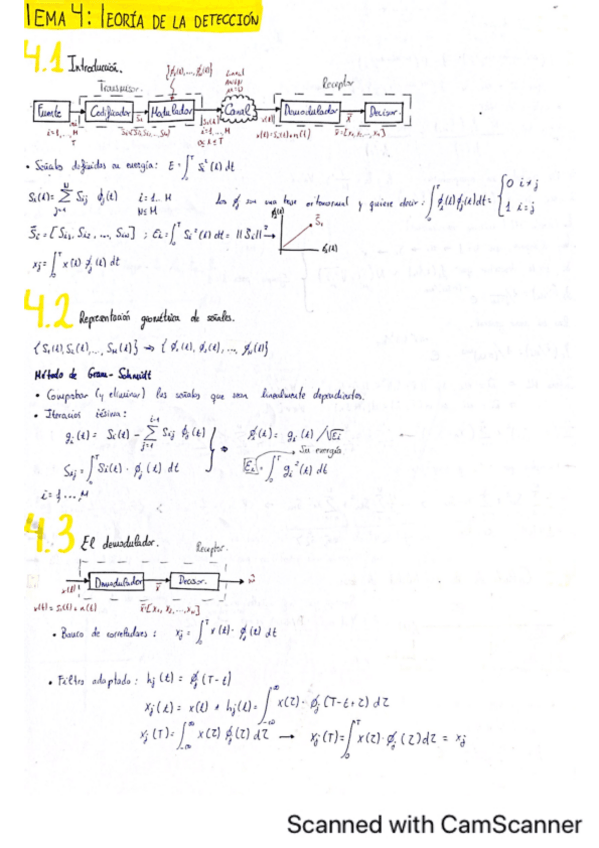 TEMA 4: TEORÍA DE LA DETECCIÓN
4.1 Introducción.
Transmisor. {ϕ₁(t),..., ϕN(t)} Canal AWGN Receptor
Fuente Codificador Modulador Canal Demodulador Decisor.
i=1,..., M
T
x(t)=Si(t)+n(t) x̄=[x₁,..., xN]
• Señales definidas en energía: E = ∫₀ᵀ Si²(t) dt
Si(t)= Σⱼ₌₁ᴺ Sij ϕj(t) i=1... M N≤M Los ϕj son una base ortonormal y quiere decir: ∫₀ᵀ ϕi(t)ϕj(t)dt = {0 i≠j 1 i=j
S̄i = [Si1, Si2, ..., SiN] ; Ei = ∫₀ᵀ Si²(t) dt = ||Si||² →
xj = ∫₀ᵀ x(t) ϕj(t) dt
4.2 Representación geométrica de señales.
{S₁(t), S₂(t),..., SM(t)} → {ϕ₁(t), ϕ₂(t), ..., ϕN(t)}
Método de Gram-Schmidt
• Comprobar (y eliminar) las señales que sean linealmente dependientes.
• Iteración iésima:
gi(t) = Si(t) - Σⱼ₌₁ⁱ⁻¹ Sij ϕj(t) ϕi(t) = gi(t) / √Ei
→ Su energía
Sij = ∫₀ᵀ Si(t) · ϕj(t) dt Ei = ∫₀ᵀ gi²(t) dt
i = 1 ..., M
4.3 El demodulador. Receptor.
Demodulador Decisor.
x(t)
x(t) = Si(t) + n(t) x̄=[x₁, x₂, ..., xN]
• Banco de correladores: xj = ∫₀ᵀ x(t) · ϕj(t) dt
• Filtro adaptado: hj(t) = ϕj(T-t)
xj(t) = x(t) * hj(t) = ∫ x(τ) · ϕj(T-t+τ) dτ
xj(T) = ∫ x(τ) ϕj(τ) dτ → xj(T) = ∫₀ᵀ x(τ) · ϕj(τ) dτ = xj
Scanned with CamScanner